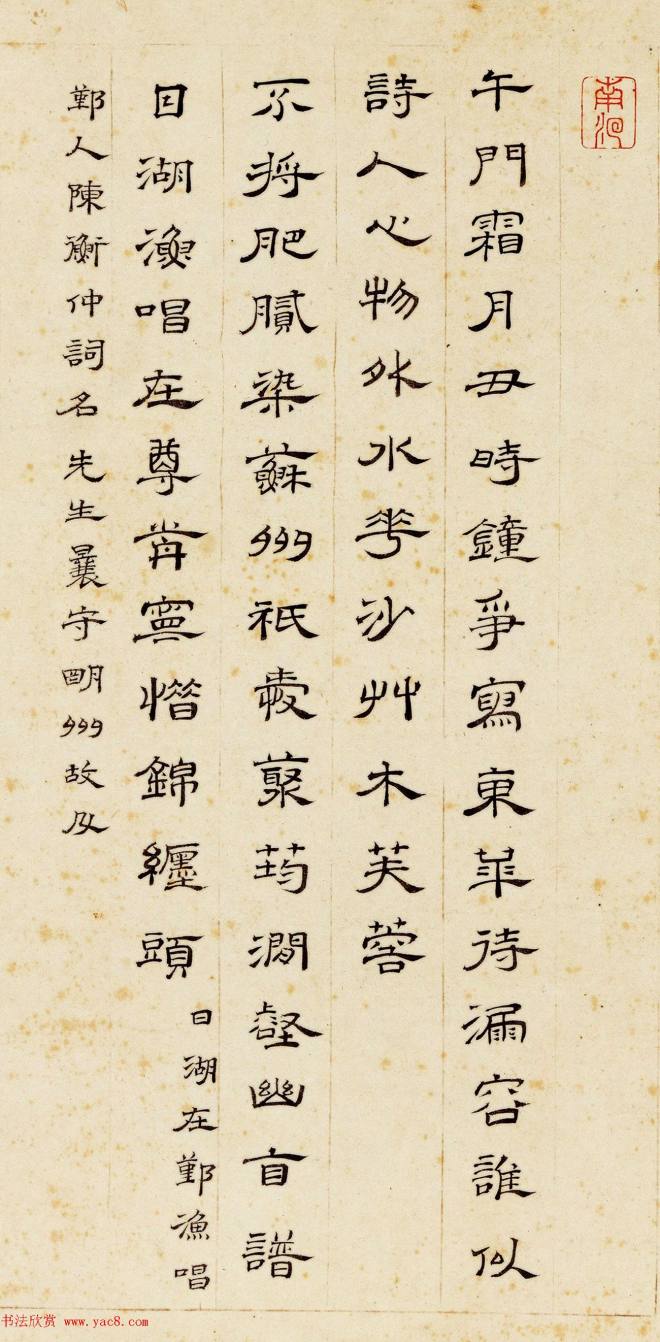 南
午門霜月丑時鐘爭寫東華待漏容誰似
詩人心物外水花沙艸木芙蓉
不將肥膩染蘇州祇愛藂筠澗壑幽肯譜
日湖漁唱在尊前寧惜錦纏頭 日湖在鄞漁唱
鄞人陳衡仲詞名 先生曩守明州故及
书法欣赏 www.yac8.com